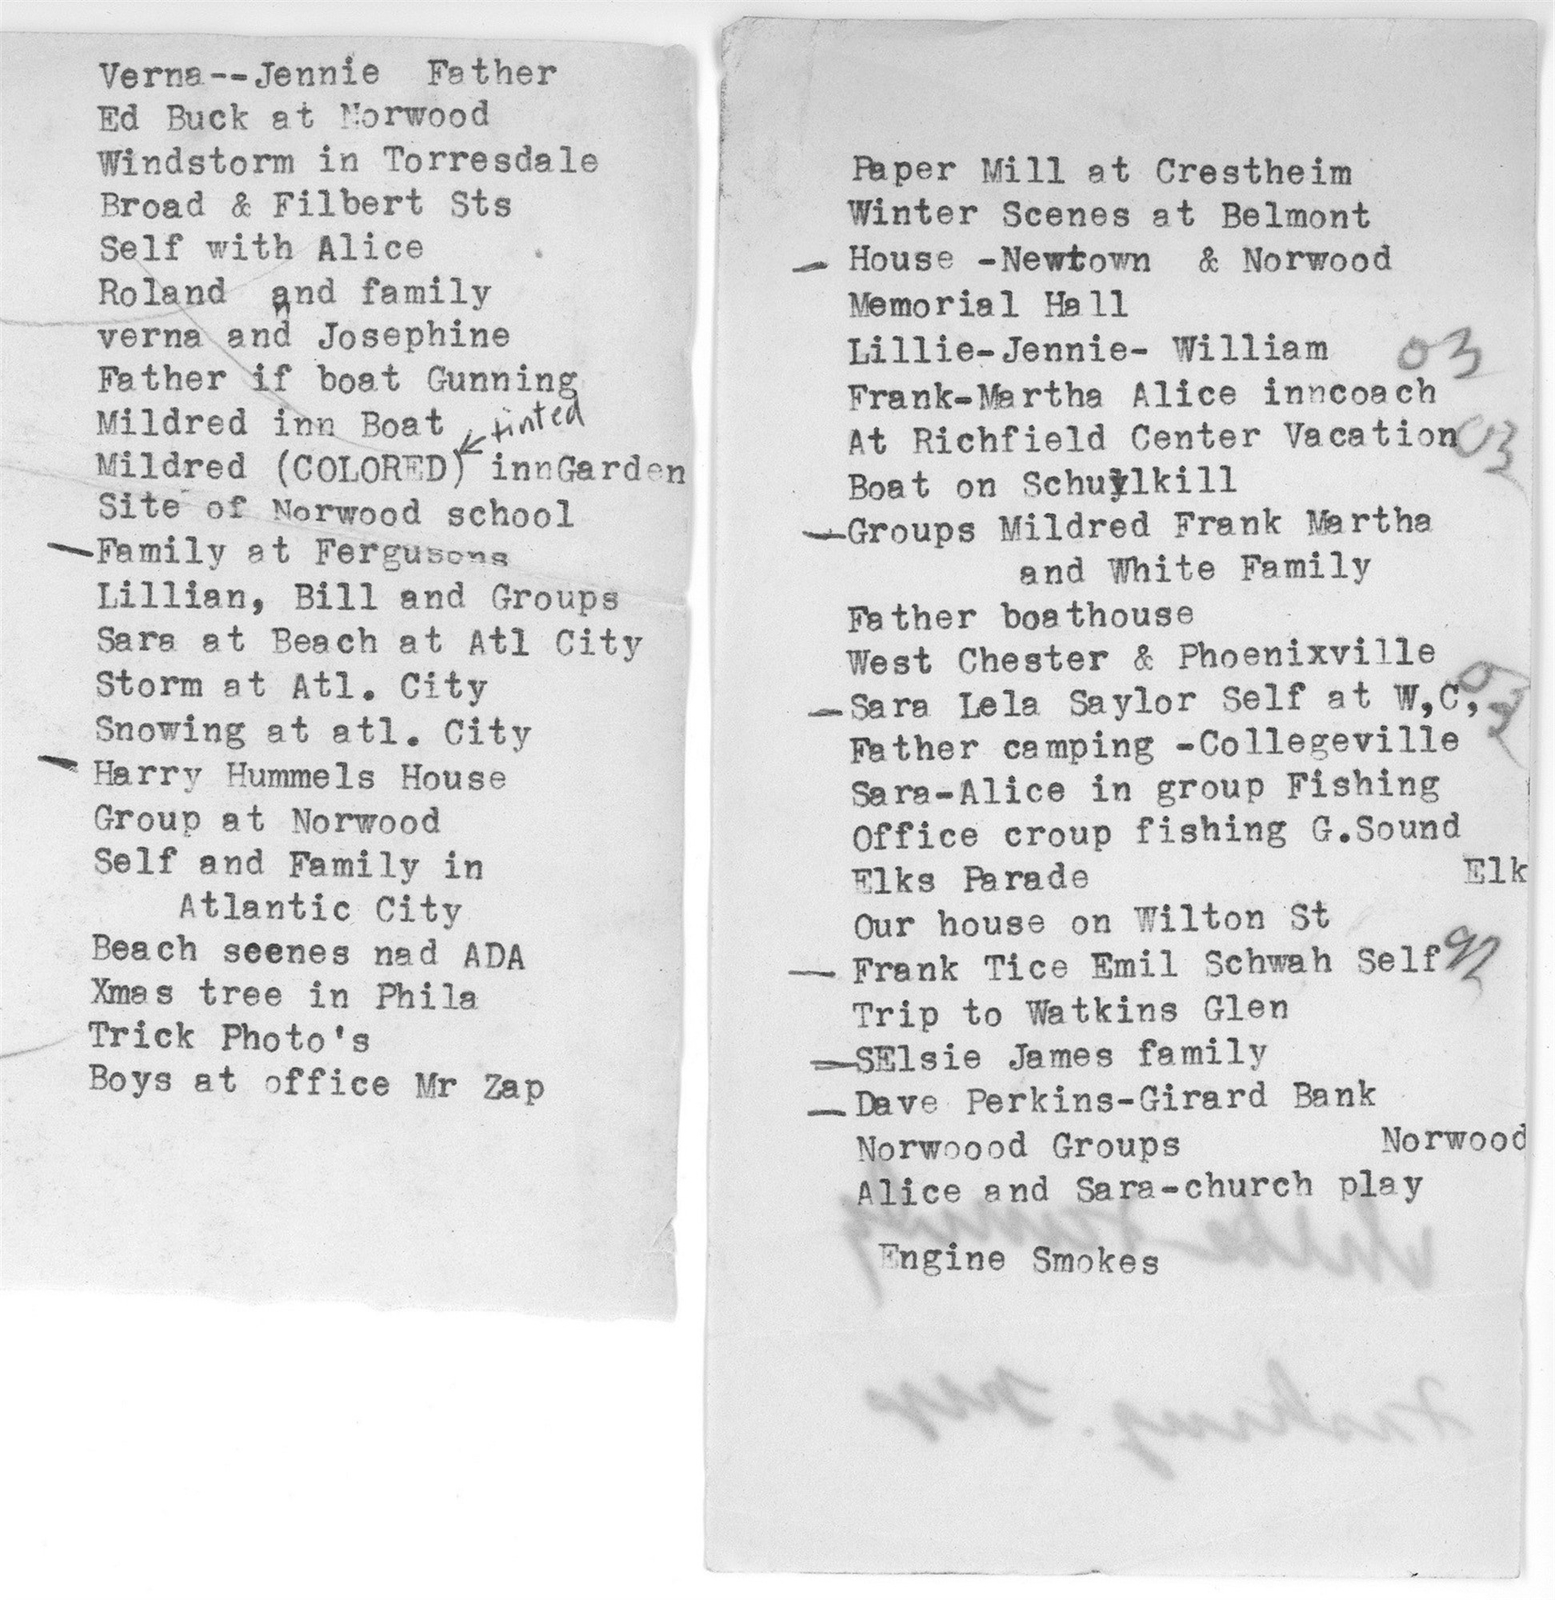 Verna--Jennie Father
Ed Buck at Norwood
Windstorm in Torresdale
Broad & Filbert Sts
Self with Alice
Roland and family
verna and Josephine
Father if boat Gunning
Mildred inn Boat
tinted
Mildred (COLORED) innGarden
Site of Norwood school
—Family at Fergusons
Lillian, Bill and Groups
Sara at Beach at Atl City
Storm at Atl. City
Snowing at atl. City
—Harry Hummels House
Group at Norwood
Self and Family in
Atlantic City
Beach seenes nad ADA
Xmas tree in Phila
Trick Photo's
Boys at office Mr Zap
Paper Mill at Crestheim
Winter Scenes at Belmont
—House -Newtown & Norwood
Memorial Hall
Lillie-Jennie- William 03
Frank-Martha Alice inncoach
At Richfield Center Vacation 03
Boat on Schuylkill
—Groups Mildred Frank Martha
and White Family
Father boathouse
West Chester & Phoenixville
—Sara Lela Saylor Self at W,C, 03
Father camping -Collegeville
Sara-Alice in group Fishing
Office croup fishing G.Sound
Elks Parade Elk
Our house on Wilton St
—Frank Tice Emil Schwah Self 92
Trip to Watkins Glen
—SElsie James family
—Dave Perkins-Girard Bank
Norwoood Groups Norwood
Alice and Sara-church play
Engine Smokes